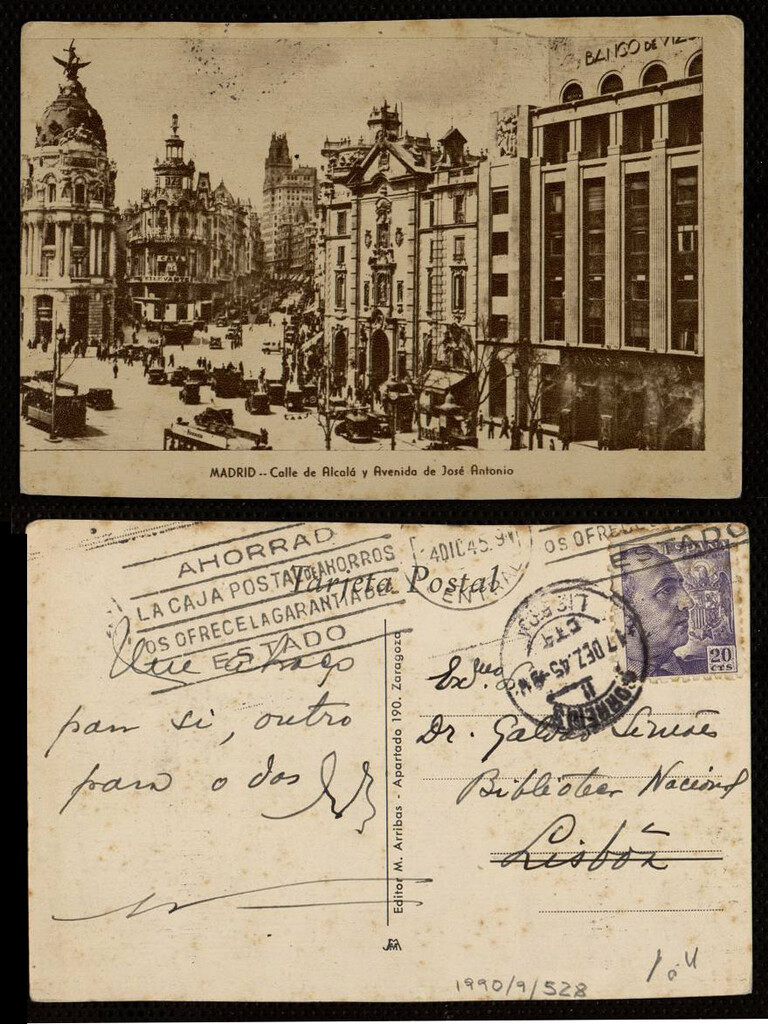 BANCO DE VIZC
MADRID -- Calle de Alcalá y Avenida de José Antonio
AHORRAD
LA CAJA POSTAL DE AHORROS
OS OFRECE LA GARANTIA DEL
ESTADO
4 DIC 45. 9
ENTRAL
OS OFRECE LA
ESTADO
Tarjeta Postal
ESPAÑA
20
CTS
LISBOA
17 DEZ. 45
CORREIOS
Um abraço
para si, outro
para o dos
Exmo.
Dr. Galvão Simões
Biblioteca Nacional
Lisbôa
Editor M. Arribas - Apartado 190. Zaragoza
1990/9/528